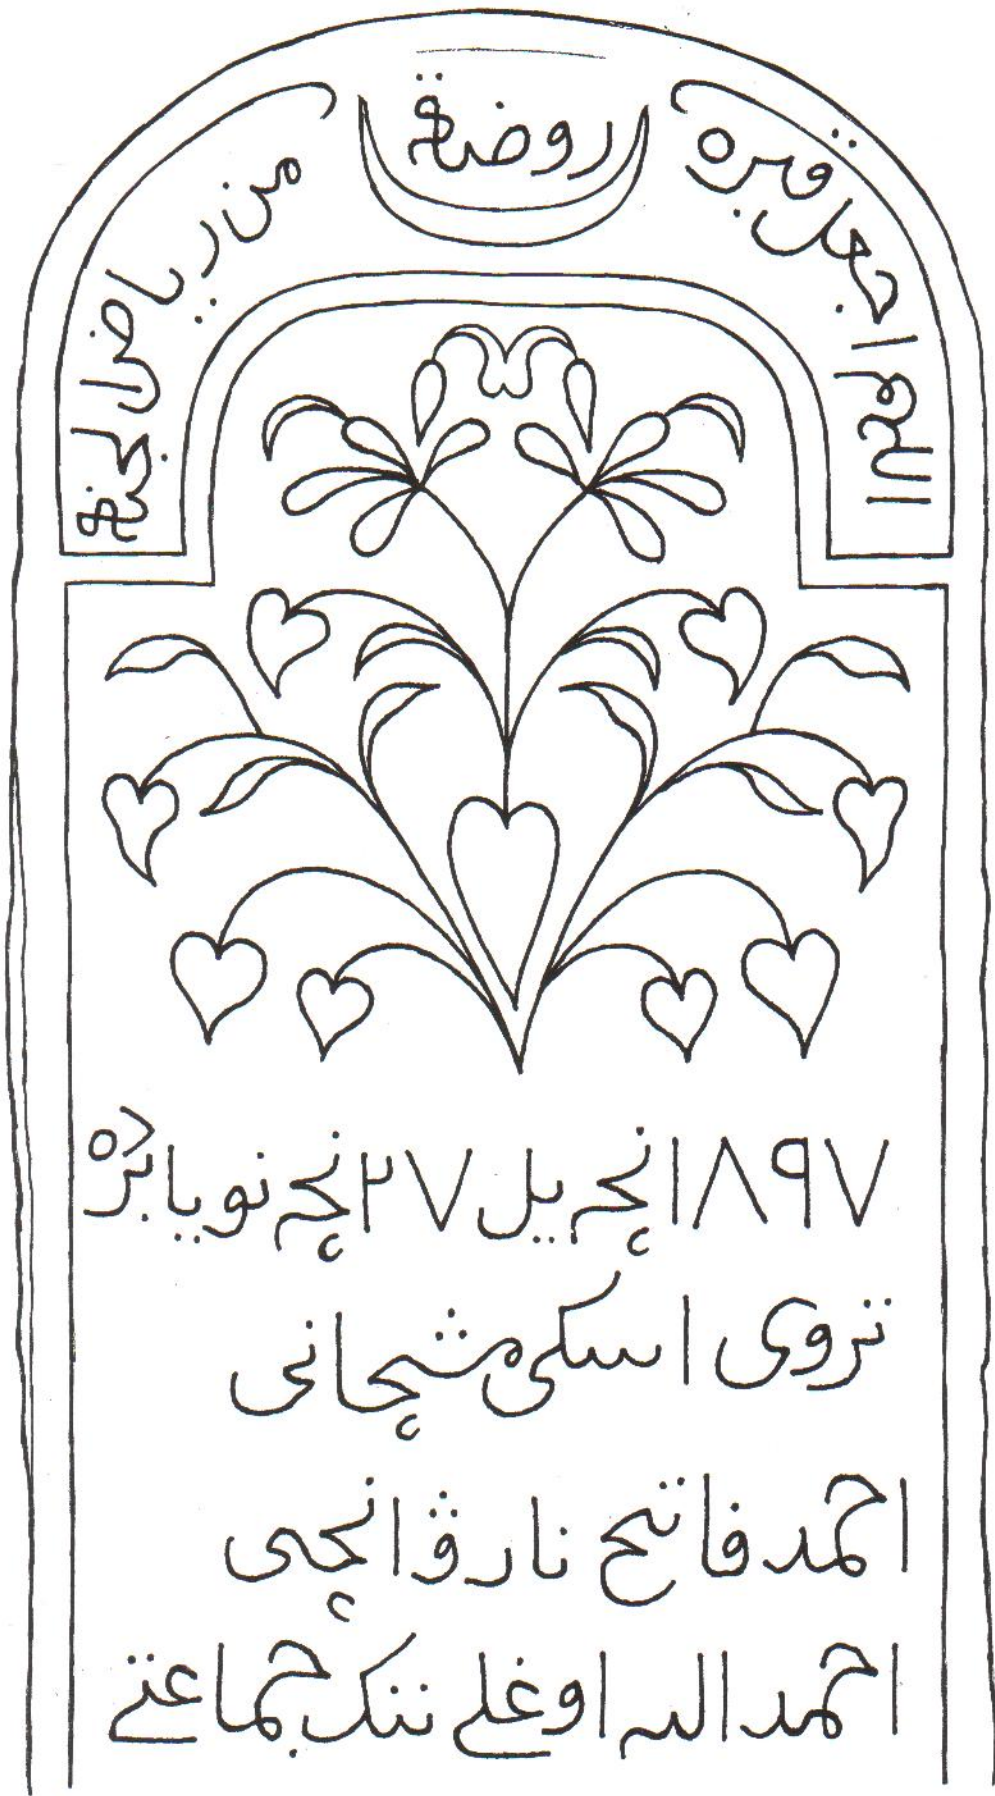 اللهم اجعل قبره
روضة
من رياض الجنة
١٨٩٧ انچی يل ٢٧ انچی نويابرْه
تروی اسکی مشچانی
احمد فاتح نارۋانچی
احمد الله اوغلی ننك جماعتی